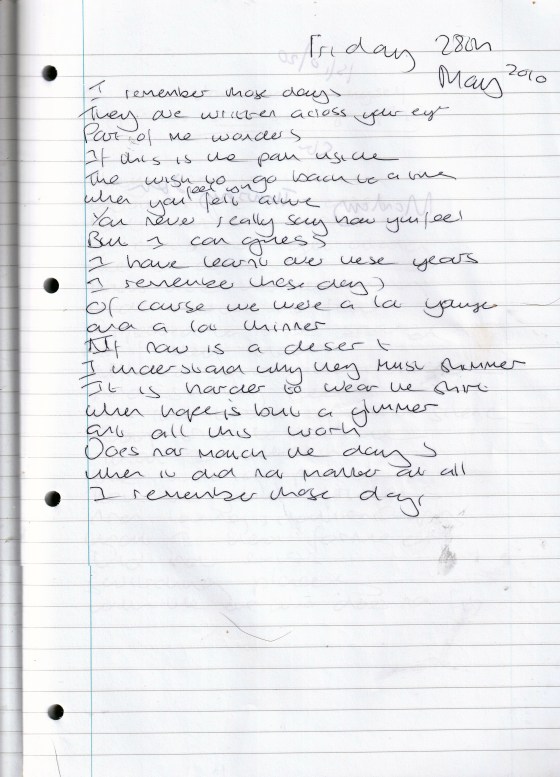 Friday 28th
May 2010
I remember those days
They are written across your eyes
Part of me wonders
If this is the pain inside
The wish to go back to a time
feel
when you felt alive
You never really say how you feel
But I can guess
I have learnt over these years
I remember those days
Of course we were a lot younger
and a lot thinner
If now is a desert
I understand why they must shimmer
It is harder to wear the shirt
when hope is but a glimmer
and all this worth
Does not match the days
when it did not matter at all
I remember those days